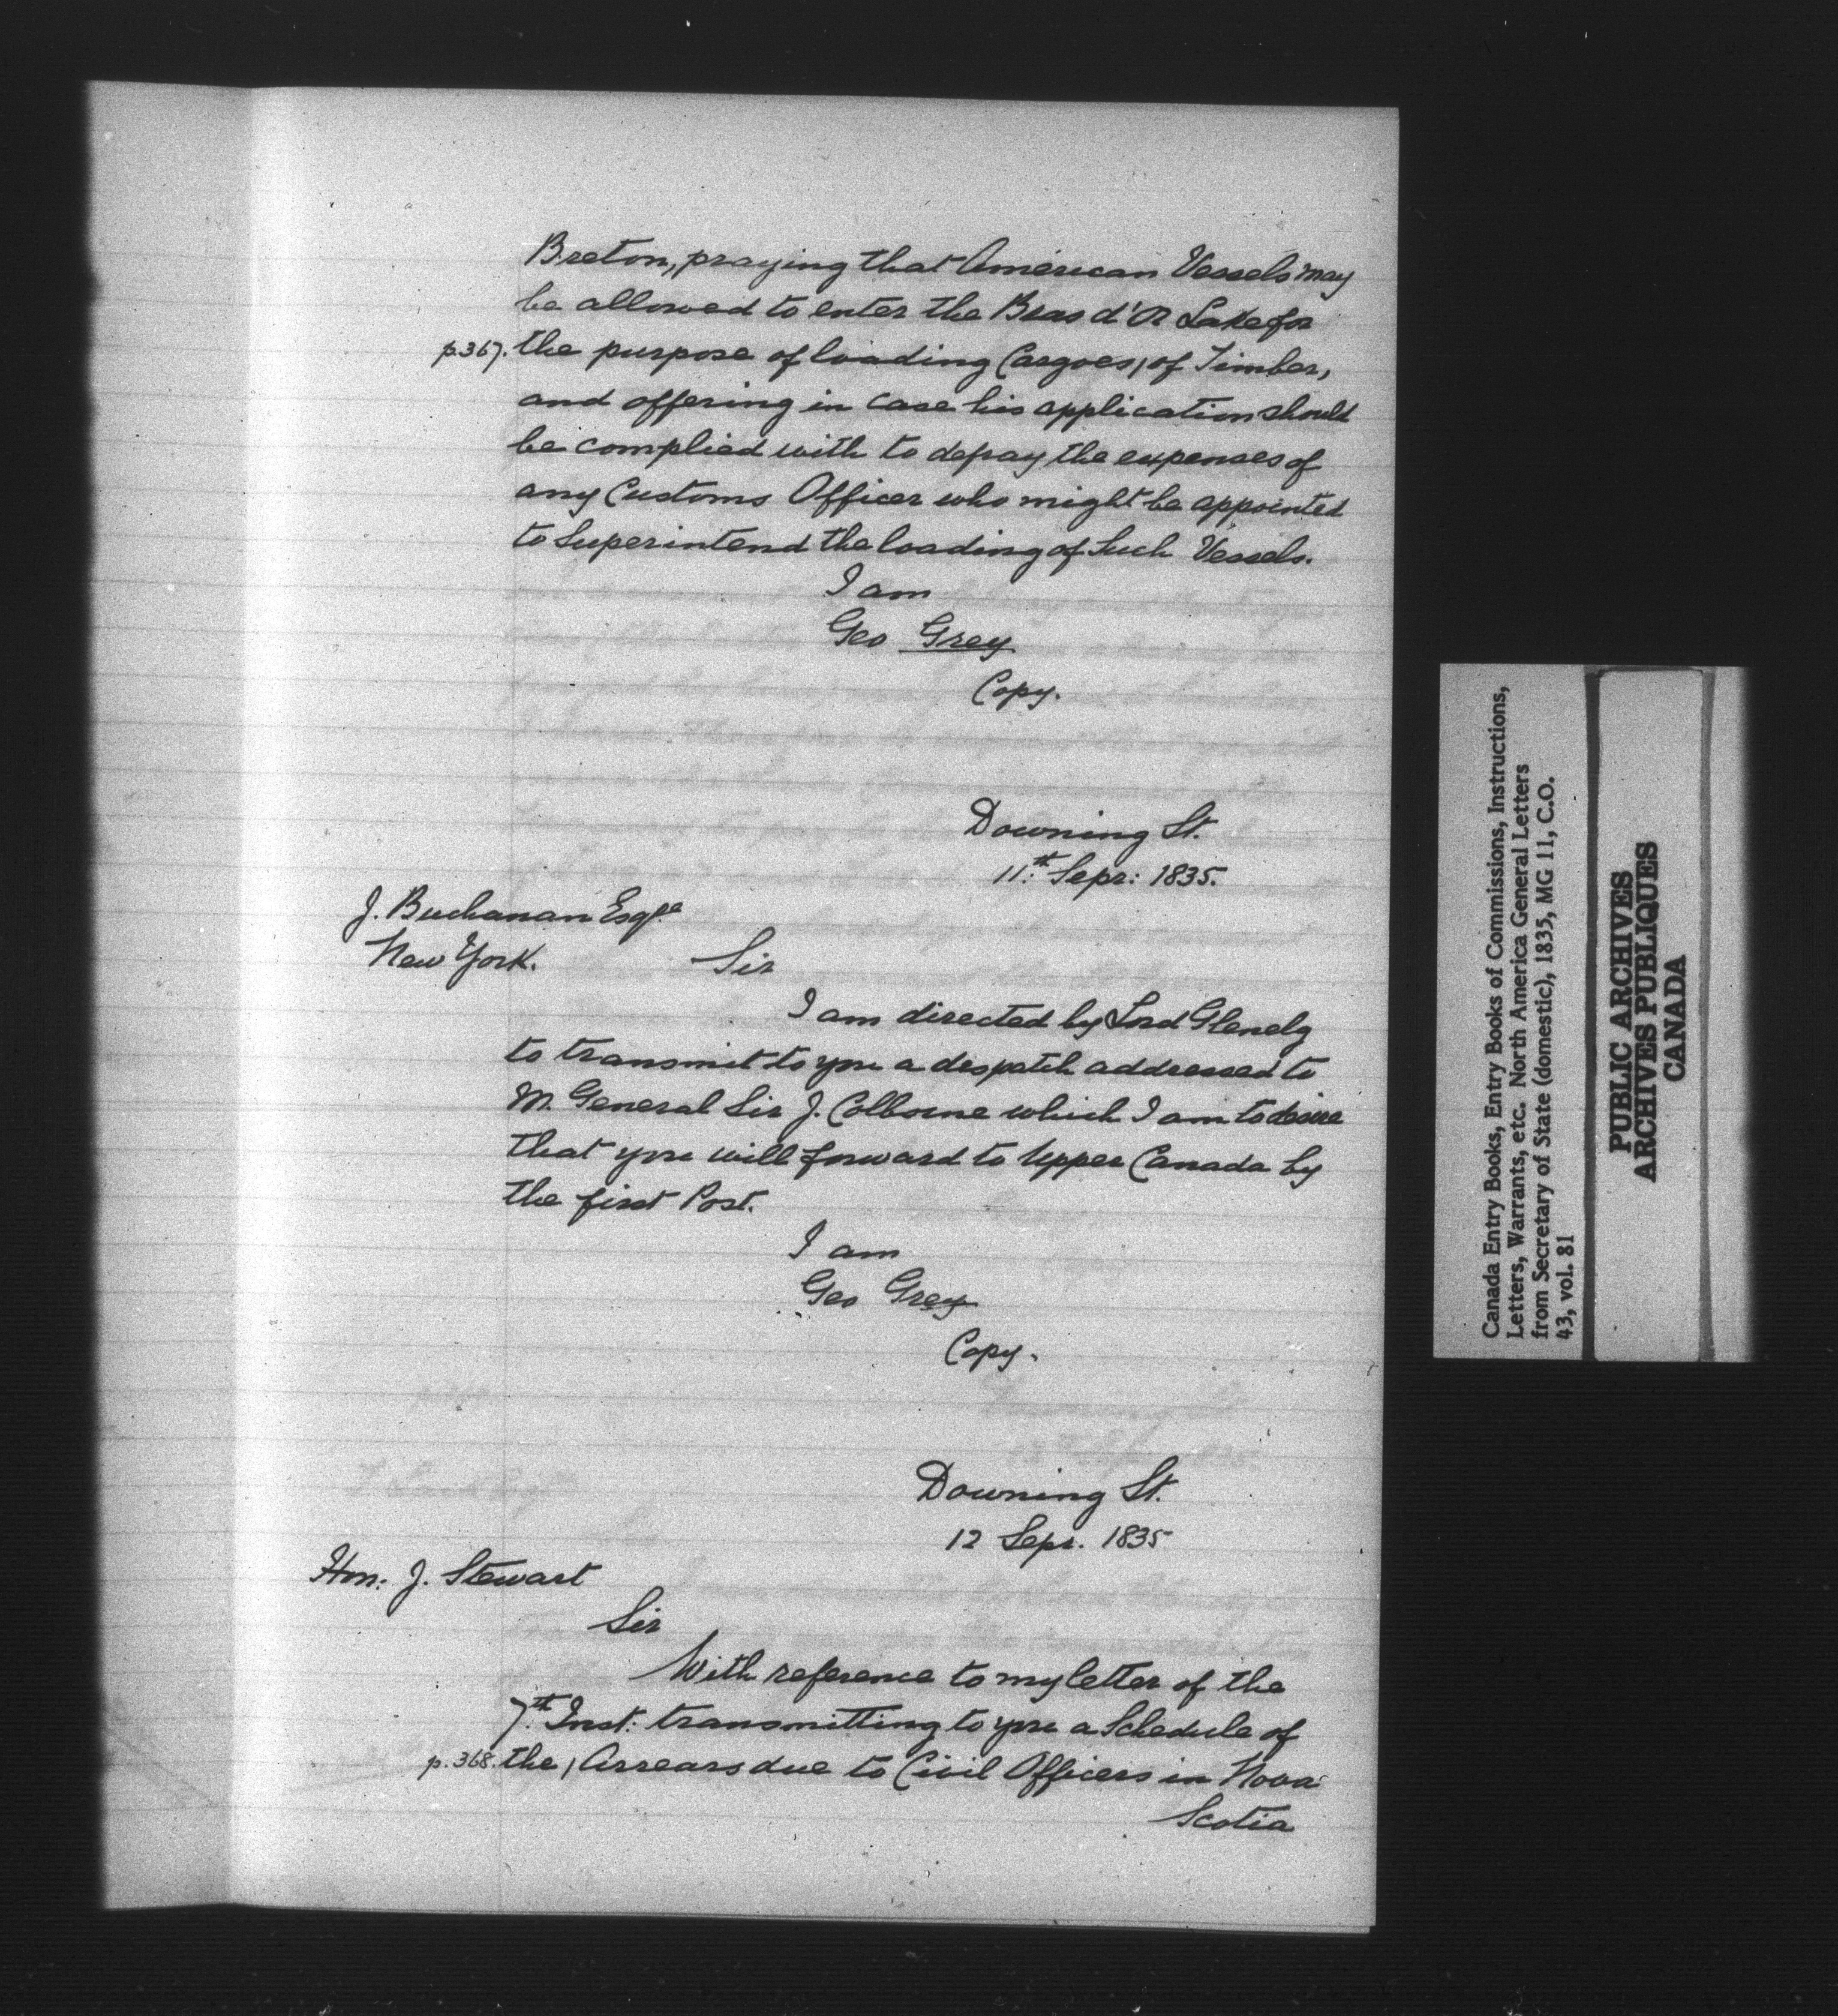 Breton, praying that American Vessels may
be allowed to enter the Bras d'Or Lake for
p.367. the purpose of loading Cargoes, of Timber,
and offering in case his application should
be complied with to defray the expenses of
any Customs Officer who might be appointed
to Superintend the loading of Such Vessels.
I am
Geo Grey
Copy.
Downing St.
11th Sepr: 1835.
J. Buchanan Esqre
New York.
Sir
I am directed by Lord Glenelg
to transmit to you a despatch addressed to
M. General Sir J. Colborne which I am to desire
that you will forward to Upper Canada by
the first Post.
I am
Geo Grey
Copy.
Downing St.
12 Sepr. 1835
Hon: J. Stewart
Sir
With reference to my letter of the
7th Inst: transmitting to you a Schedule of
p.368. the | Arrears due to Civil Officers in Nova
Scotia
Canada Entry Books, Entry Books of Commissions, Instructions,
Letters, Warrants, etc. North America General Letters
from Secretary of State (domestic), 1835, MG 11, C.O.
43, vol. 81
PUBLIC ARCHIVES
ARCHIVES PUBLIQUES
CANADA